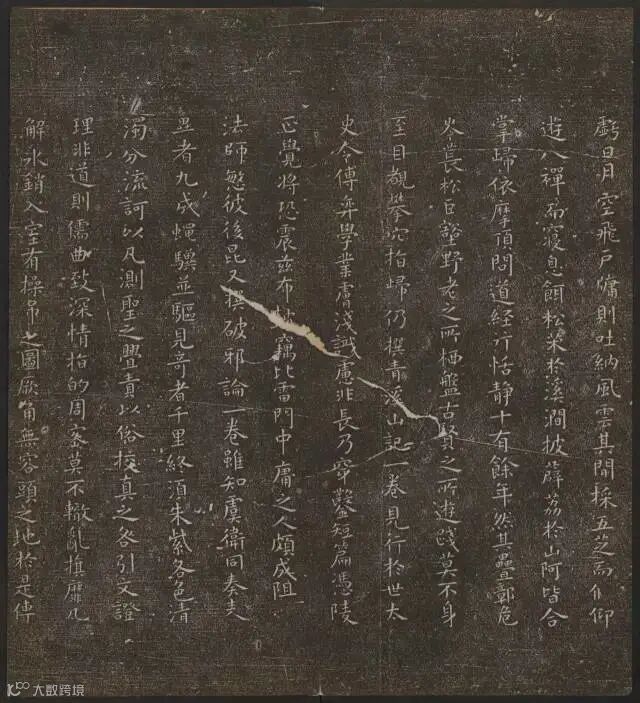 虧日月空飛户牖則吐納風雲其間採五芝而偃仰
遊八禪而寢息餌松朮於溪澗披薜荔於山阿皆合
掌歸依摩頂問道經行恬静十有餘年然其疊鄣危
岑長松巨壑野老之所栖盤古賢之所遊踐莫不身
至目覩攀穴指歸仍撰青溪山記一卷見行於世太
史令傅弈學業膚淺識慮非長乃穿鑿短篇憑陵
正覺將恐震兹布鼓竊比雷門中庸之人頗成阻
法師愍彼後昆又撰破邪論一卷雖知虞衛同奏表
異者九成蠅驥並驅見奇者千里終須朱紫各色清
濁分流訶以凡測聖之舋責以俗校真之咎引文證
理非道則儒曲致深情指的周密莫不轍亂旗靡瓦
解冰銷入室有操矛之圖厥角無容頭之地於是傅
大數跨境